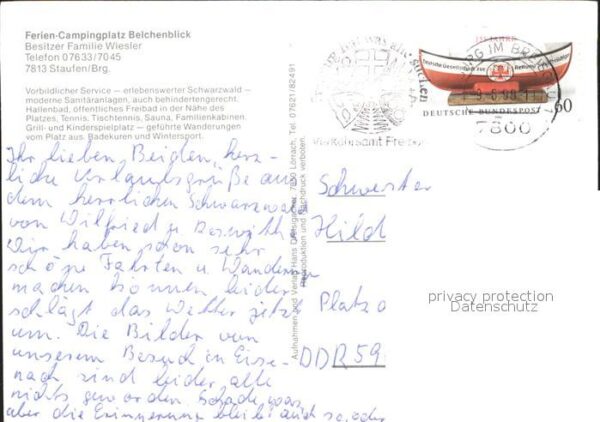 Ferien-Campingplatz Belchenblick
Besitzer Familie Wiesler
Telefon 07633/7045
7813 Staufen/Brg.
Vorbildlicher Service — erlebenswerter Schwarzwald —
moderne Sanitäranlagen, auch behindertengerecht.
Hallenbad, öffentliches Freibad in der Nähe des
Platzes, Tennis, Tischtennis, Sauna, Familienkabinen.
Grill- und Kinderspielplatz — geführte Wanderungen
vom Platz aus. Badekuren und Wintersport.
Ihr lieben Beiden, herz-
liche Urlaubsgrüße aus
dem herrlichen Schwarzwald
von Wilfried u. Roswith
Wir haben schon sehr
schöne Fahrten u. Wanderun
machen können leider
schlägt das Wetter jetzt
um. Die Bilder von
unserem Besuch in Eise-
nach sind leider alle
nichts geworden. Schade
aber die Erinnerung bleibt auch so
Aufnahmen und Verlag Hans 7850 Lörrach, Tel. 07621/82491
Reproduktion und Nachdruck verboten
125 JAHRE
Deutsche Gesellschaft zur Rettung
60
DEUTSCHE BUNDESPOST
BURG IM BR
9.6.88-11
7800
Verkehrsamt Frei
Schwester
Hild
Platz
DDR 59
privacy protection
Datenschutz